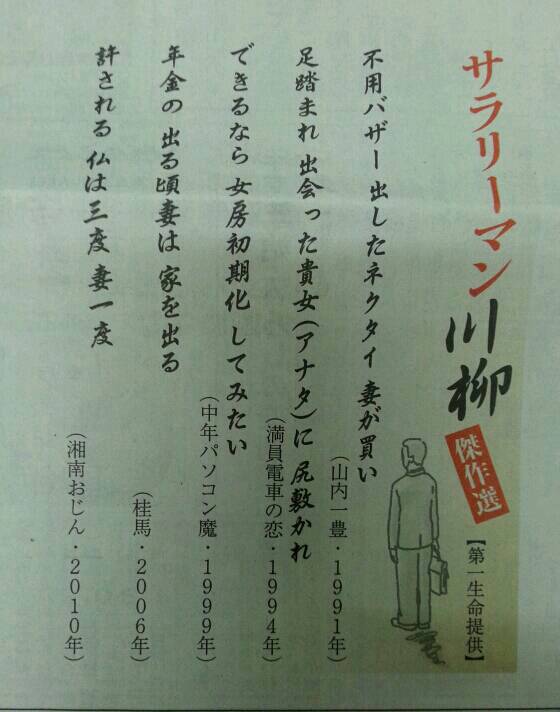 サラリーマン川柳
傑作選
【第一生命提供】
不用バザー出したネクタイ妻が買い
(山内一豊・1991年)
足踏まれ出会った貴女(アナタ)に尻敷かれ
(満員電車の恋・1994年)
できるなら女房初期化してみたい
(中年パソコン魔・1999年)
年金の出る頃妻は家を出る
(桂馬・2006年)
許される仏は三度妻一度
(湘南おじん・2010年)